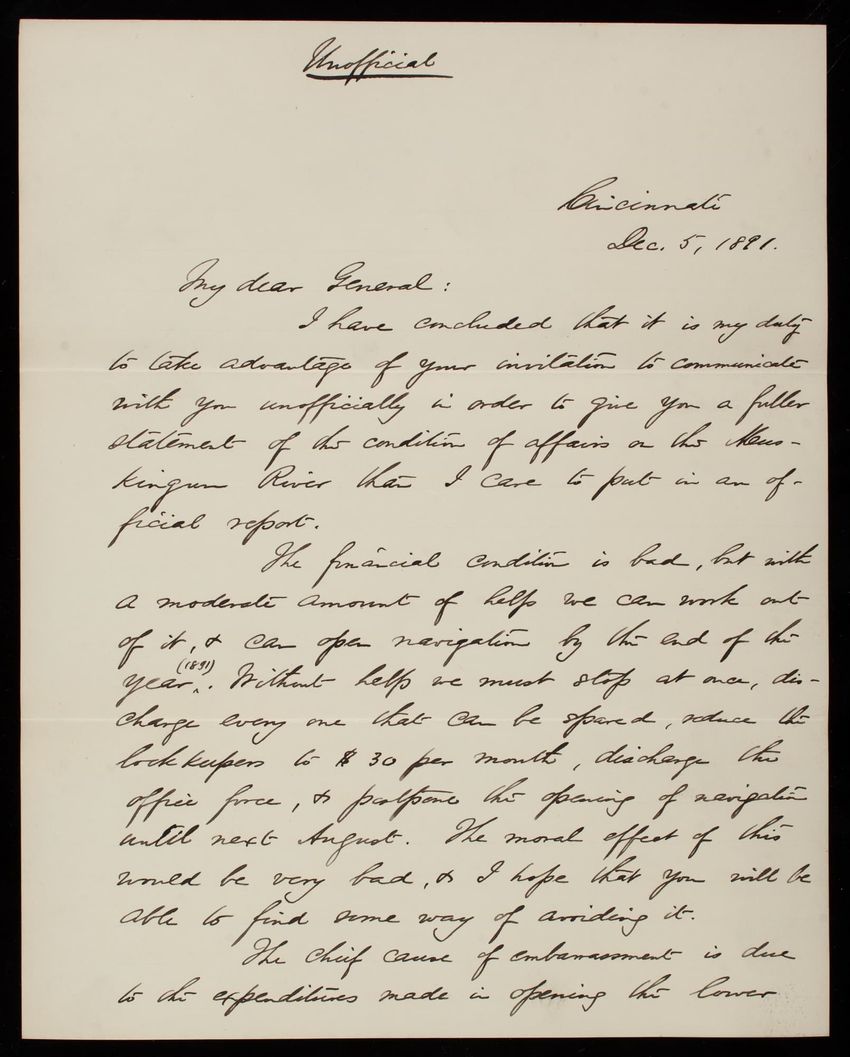 Unofficial
Cincinnati
Dec. 5, 1891.
My dear General:
I have concluded that it is my duty
to take advantage of your invitation to communicate
with you unofficially in order to give you a fuller
statement of the condition of affairs on the Mus-
kingum River than I care to put in an of-
ficial report.
The financial condition is bad, but with
a moderate amount of help we can work out
of it, & can open navigation by the end of the
year (1891). Without help we must stop at once, dis-
charge every one that can be spared, reduce the
lockkeepers to $30 per month, discharge the
office force, & postpone the opening of navigation
until next August. The moral effect of this
would be very bad, & I hope that you will be
able to find some way of avoiding it.
The chief cause of embarrassment is due
to the expenditures made in opening the lower